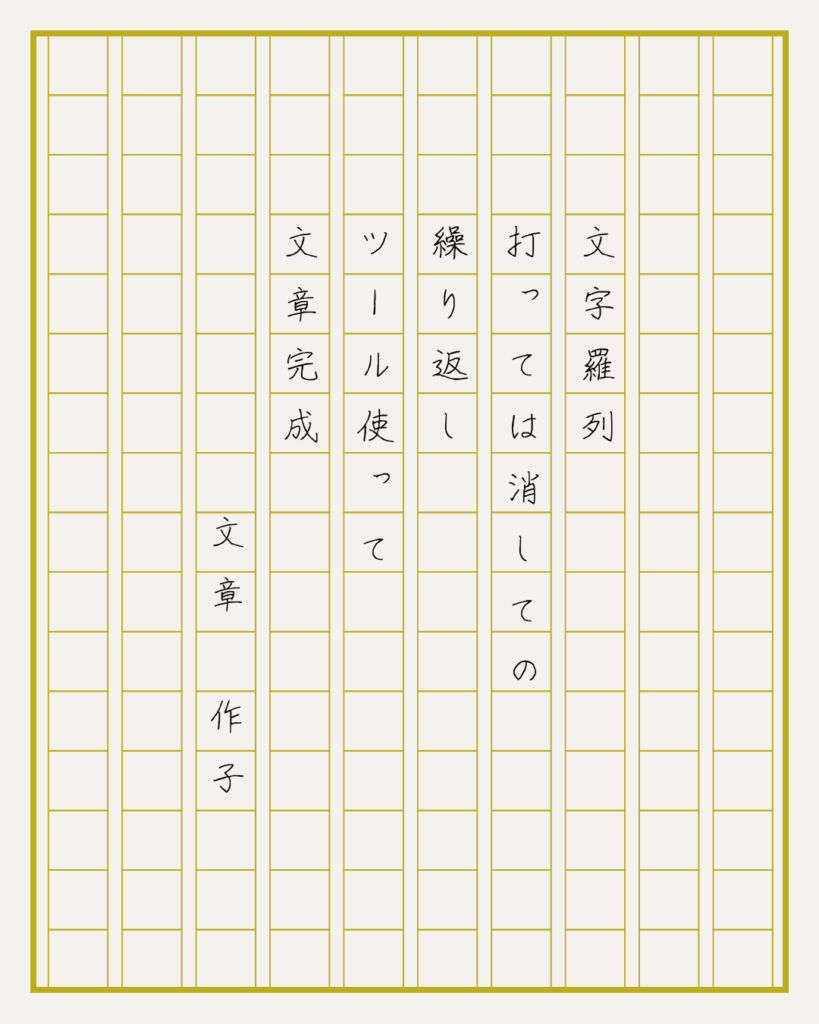 文字羅列
打っては消しての
繰り返し
ツール使って
文章完成
文章　作子